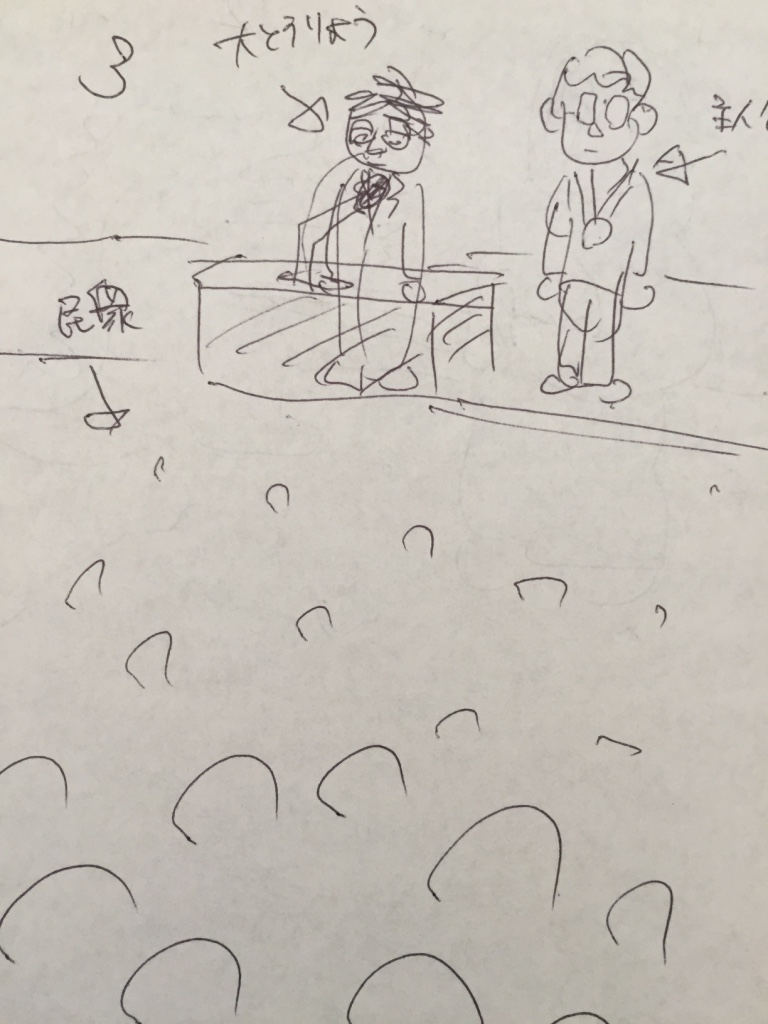 3
大とうりょう
主人
民衆